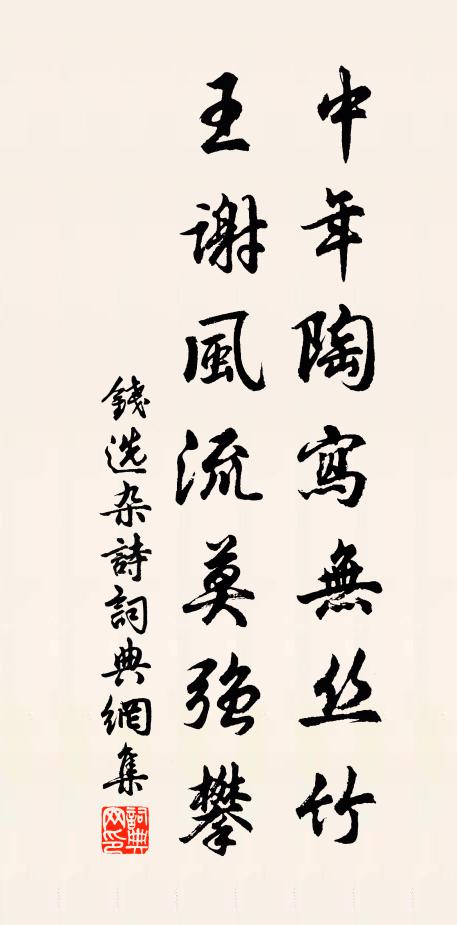 中年陶寫無丝竹
王谢風流莫强攀
錢选杂詩詞典網集
詞典網印